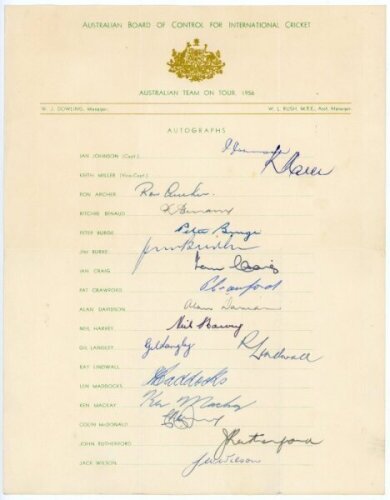 AUSTRALIAN BOARD OF CONTROL FOR INTERNATIONAL CRICKET
AUSTRALIAN TEAM ON TOUR, 1956
W. J. DOWLING, Manager. W. L. RUSH, M.B.E., Asst. Manager.
AUTOGRAPHS
IAN JOHNSON (Capt.)
KEITH MILLER (Vice-Capt.)
RON ARCHER Ron Archer.
RITCHIE BENAUD R Benaud
PETER BURGE Peter Burge
JIM BURKE
IAN CRAIG Ian Craig
PAT CRAWFORD P Crawford
ALAN DAVIDSON Alan Davidson
NEIL HARVEY Neil Harvey
GIL LANGLEY Gil Langley R Lindwall
RAY LINDWALL
LEN MADDOCKS L Maddocks
KEN MACKAY Ken Mackay
COLIN McDONALD
JOHN RUTHERFORD J Rutherford
JACK WILSON J W Wilson